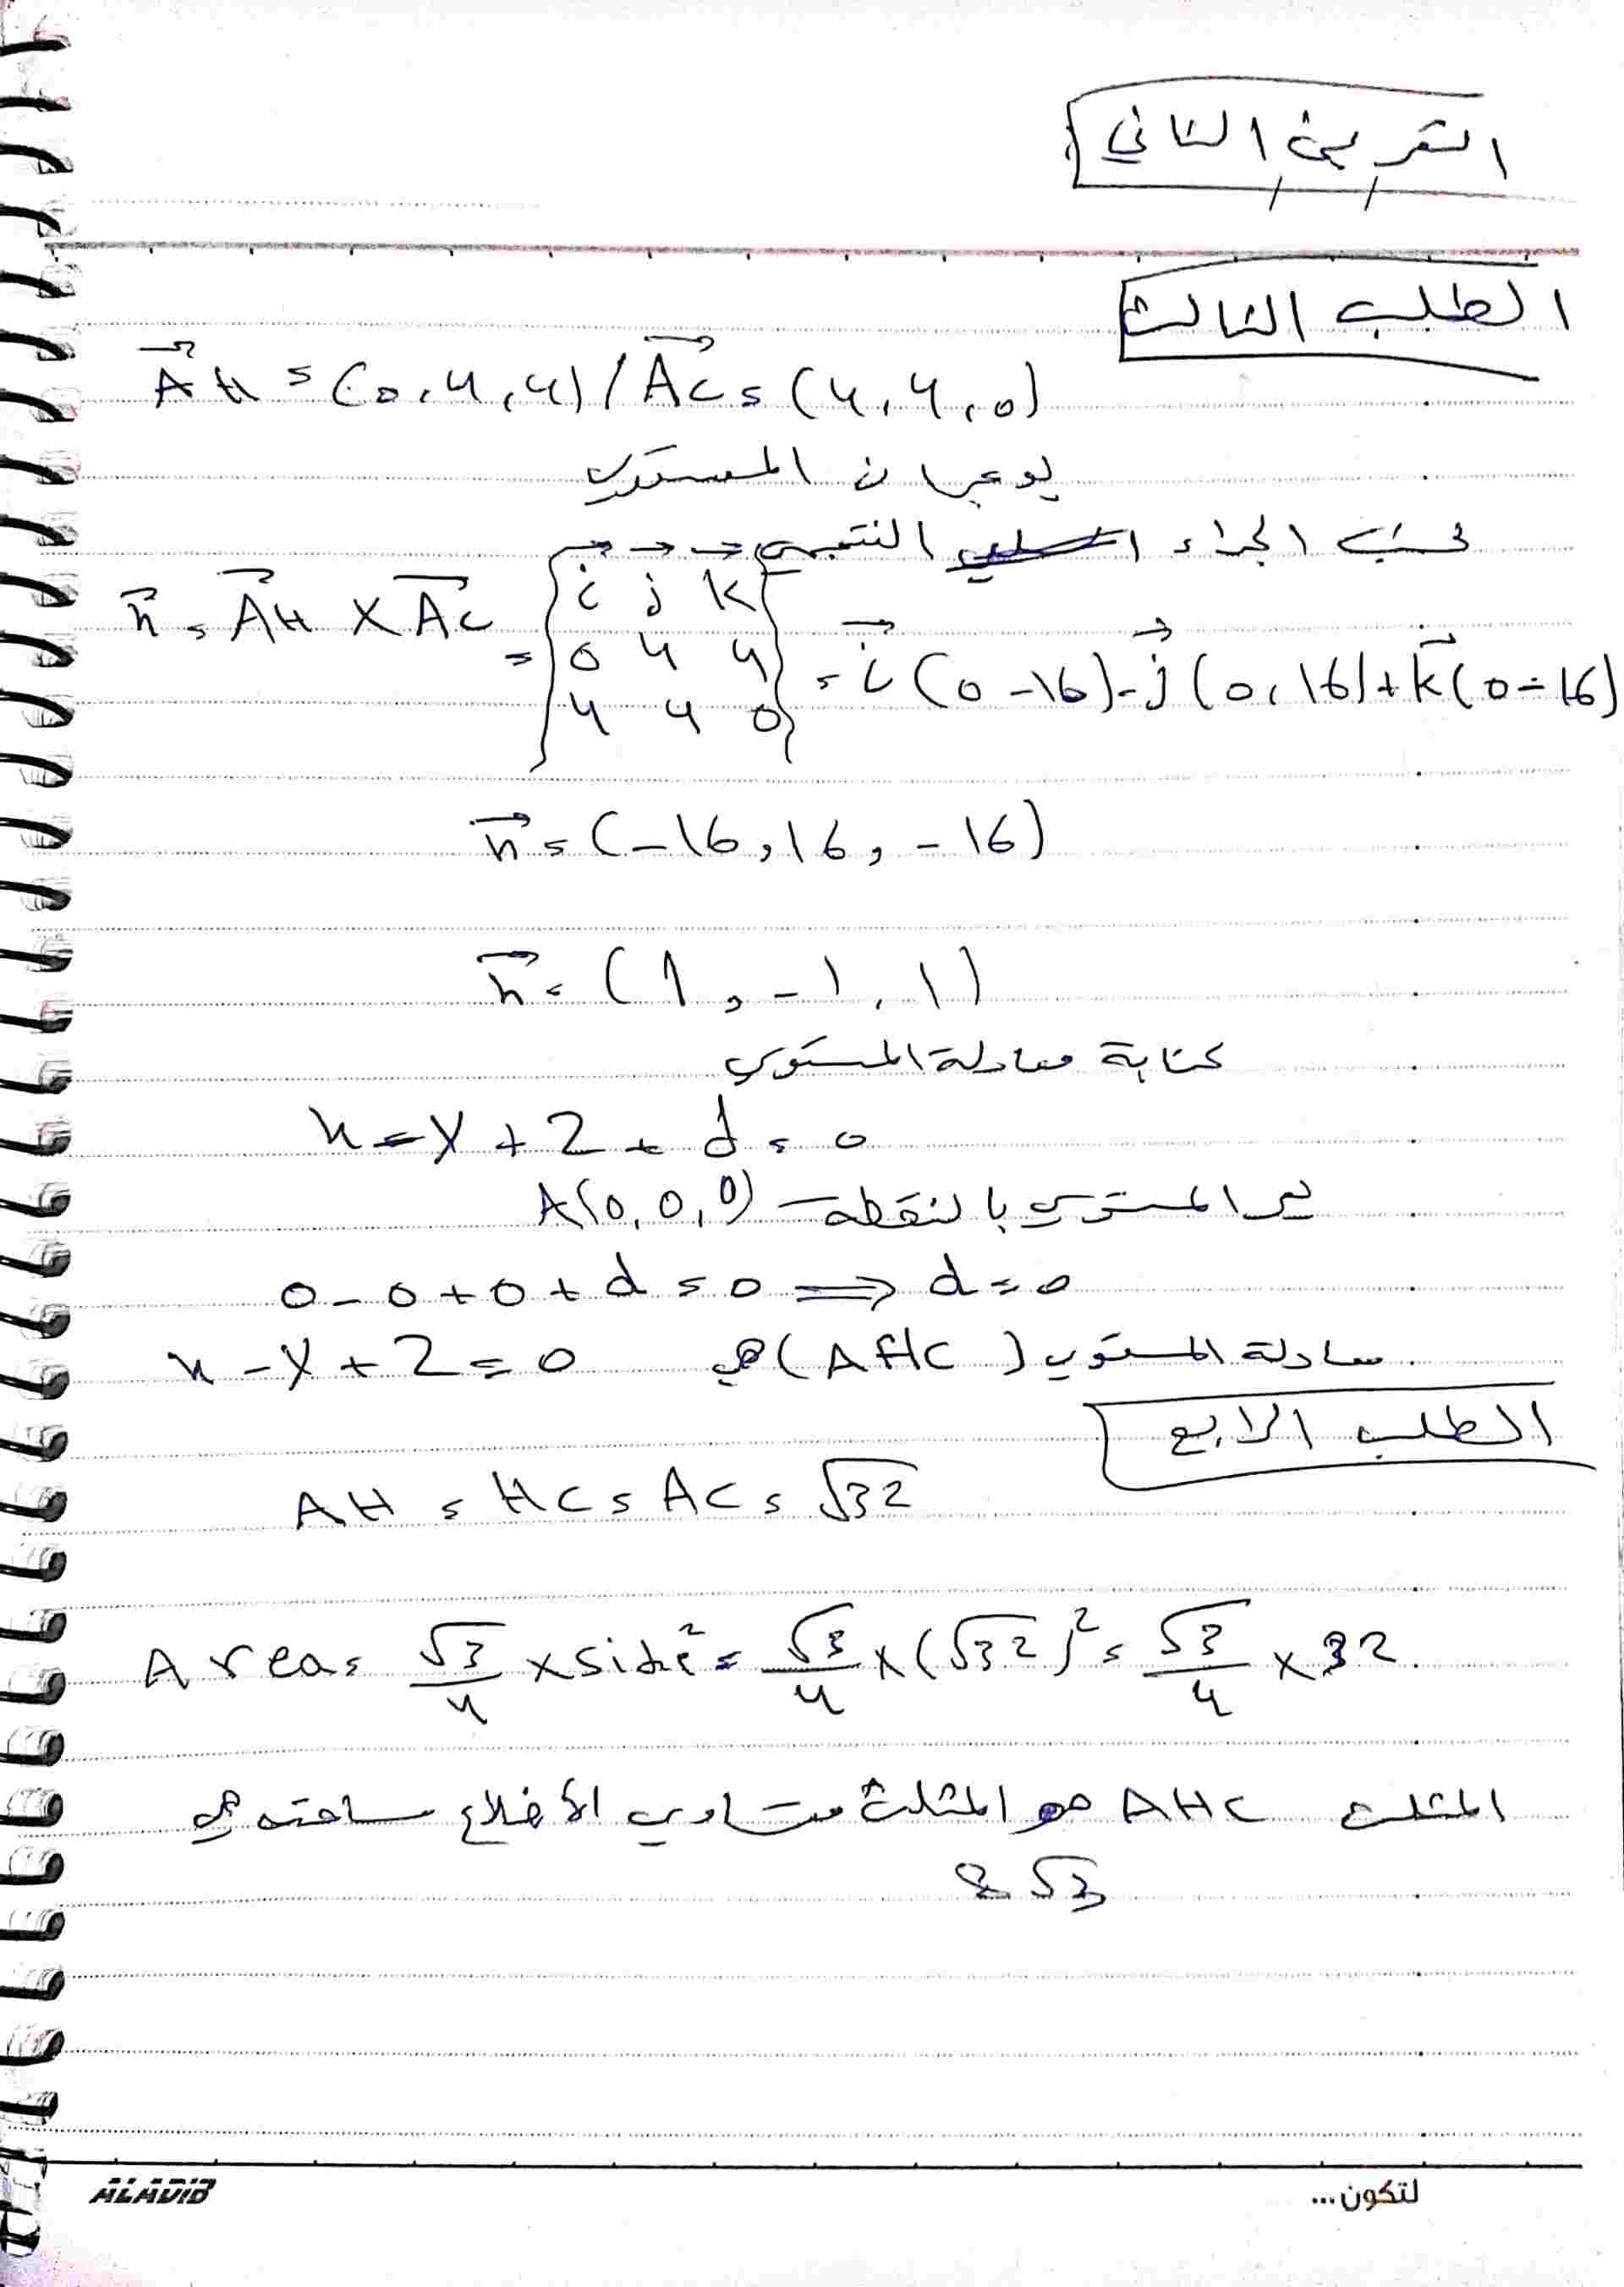 التمرين الثاني
الطلب الثالث
AH = (0, 4, 4) / AC = (4, 4, 0)
يوجهان المستوي
نحسب الجداء النتجهي
n = AH × AC = = | i j k |
| 0 4 4 | = i (0 - 16) - j (0, 16) + k (0 - 16)
| 4 4 0 |
n = (-16, 16, -16)
n = (1, -1, 1)
كتابة معادلة المستوي
x - y + z + d = 0
يمر المستوي بالنقطة A(0, 0, 0)
0 - 0 + 0 + d = 0 ⟹ d = 0
معادلة المستوي (AHC) هي x - y + z = 0
الطلب الرابع
AH = HC = AC = √32
Area = √3/4 × side² = √3/4 × (√32)² = √3/4 × 32
المثلث AHC هو المثلث متساوي الأضلاع مساحته هي
8√3
ALADIB
لتكون...